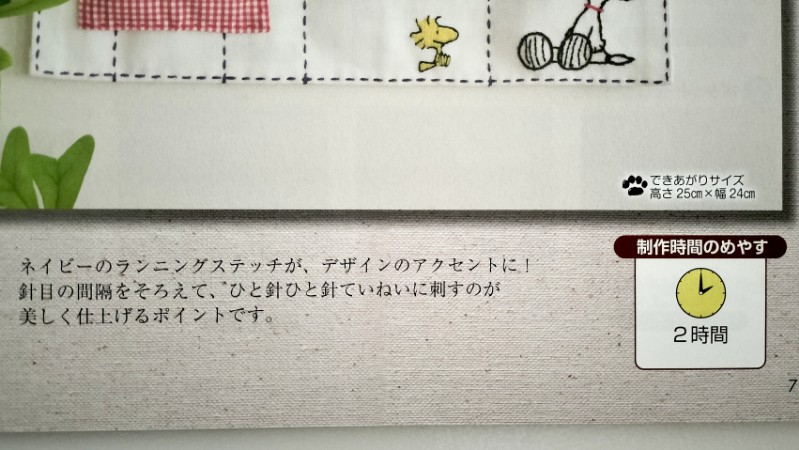 できあがりサイズ
高さ25cm×幅24cm
ネイビーのランニングステッチが、デザインのアクセントに！
針目の間隔をそろえて、ひと針ひと針ていねいに刺すのが
美しく仕上げるポイントです。
制作時間のめやす
2時間
7